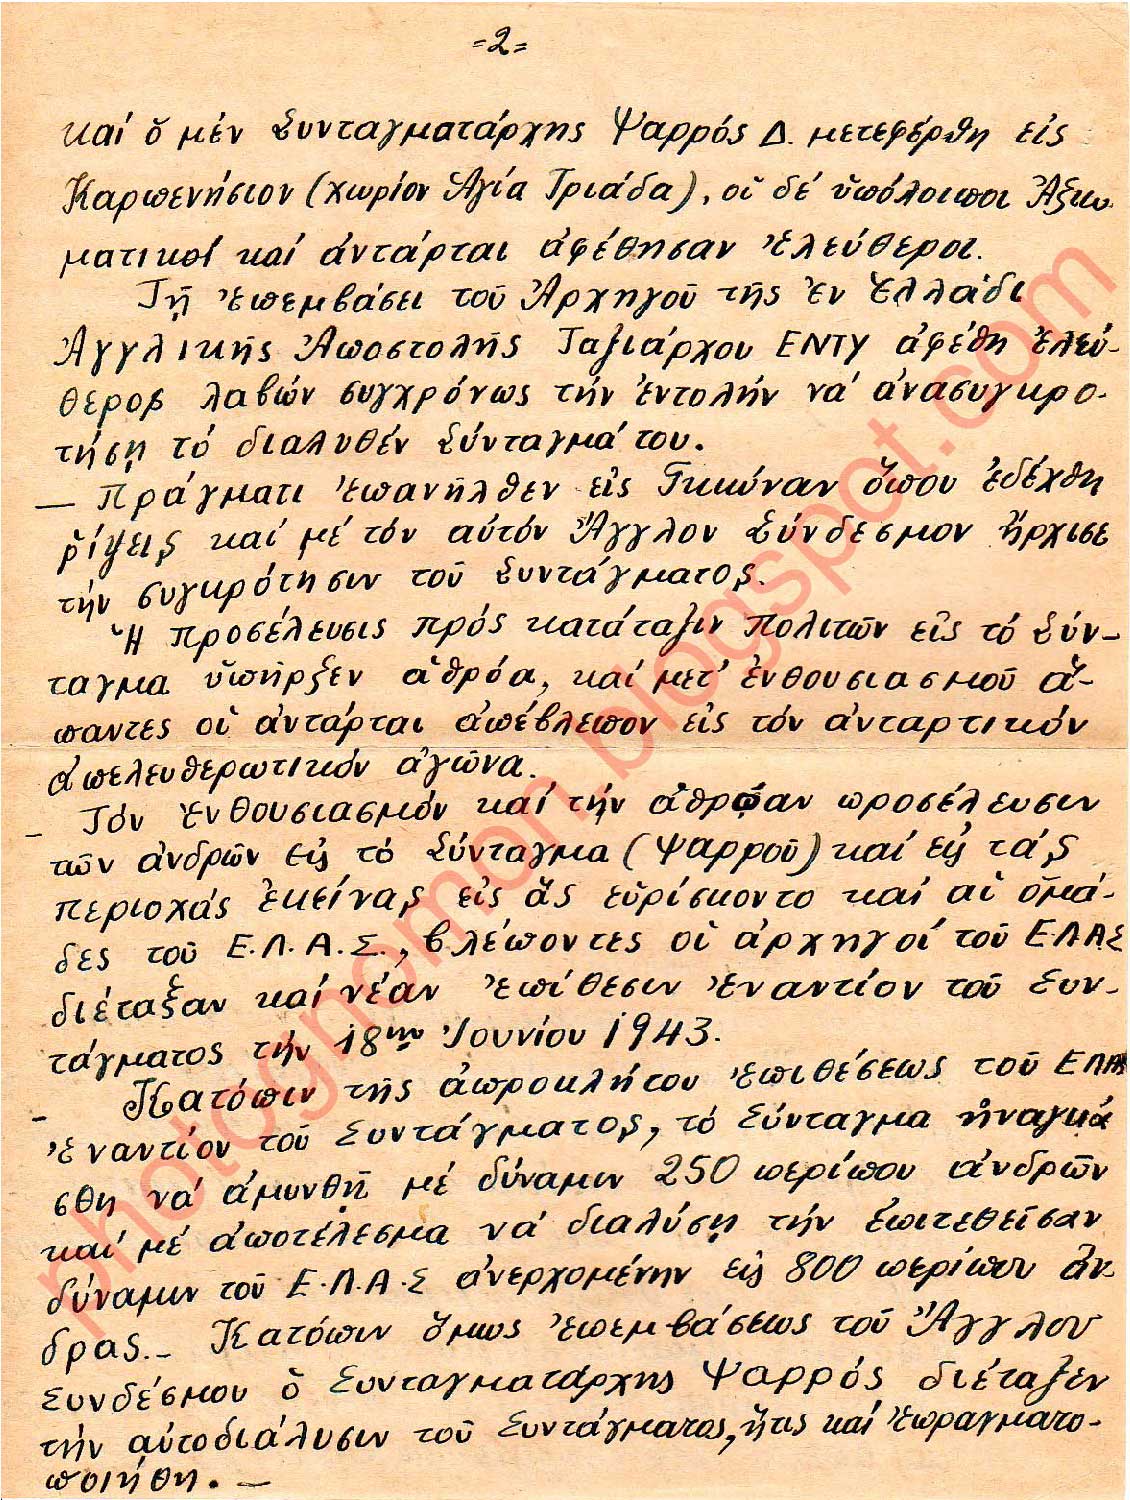 =2=
καί ὅ μέν Συνταγματάρχης Ψαρρός Δ. μετεφέρθη εἰς
Καρπενήσιον (χωρίον Ἁγία Τριάδα), οἱ δέ ὑπόλοιποι Ἀξιω-
ματικοί καί ἀντάρται ἀφέθησαν ἐλεύθεροι.
Τῇ ἐπεμβάσει τοῦ Ἀρχηγοῦ τῆς ἐν Ἑλλάδι
Ἀγγλικῆς Ἀποστολῆς Ταξιάρχου ΕΝΤΥ ἀφέθη ἐλεύ-
θερος λαβών συγχρόνως τήν ἐντολήν νά ἀνασυγκρο-
τήσῃ τό διαλυθέν Σύνταγμά του.
— Πράγματι ἐπανῆλθεν εἰς Γκιώναν ὅπου ἐδέχθη
ρίψεις καί μέ τόν αὐτόν Ἄγγλον Σύνδεσμον ἤρχισε
τήν συγκρότησιν τοῦ Συντάγματος.
Ἡ προσέλευσις πρός κατάταξιν πολιτῶν εἰς τό Σύν-
ταγμα ὑπῆρξεν ἀθρόα, καί μετ' ἐνθουσιασμοῦ ἅ-
παντες οἱ ἀντάρται ἀπέβλεπον εἰς τόν ἀνταρτικόν
ἀπελευθερωτικόν ἀγῶνα.
- Τόν ἐνθουσιασμόν καί τήν ἀθρόαν προσέλευσιν
τῶν ἀνδρῶν εἰς τό Σύνταγμα (Ψαρροῦ) καί εἰς τάς
περιοχάς ἐκείνας εἰς ἅς εὑρίσκοντο καί αἱ ὁμά-
δες τοῦ Ε.Λ.Α.Σ., βλέποντες οἱ ἀρχηγοί τοῦ Ε.Λ.Α.Σ
διέταξαν καί νέαν ἐπίθεσιν ἐναντίον τοῦ Συν-
τάγματος τήν 18ην Ἰουνίου 1943.
- Κατόπιν τῆς ἀπροκλήτου ἐπιθέσεως τοῦ ΕΛΑΣ
ἐναντίον τοῦ Συντάγματος, τό Σύνταγμα ἠναγκά
σθη νά ἀμυνθῇ μέ δύναμιν 250 περίπου ἀνδρῶν
καί μέ ἀποτέλεσμα νά διαλύσῃ τήν ἐπιτεθεῖσαν
δύναμιν τοῦ Ε.Λ.Α.Σ ἀνερχομένην εἰς 800 περίπου ἄν-
δρας.- Κατόπιν ὅμως ἐπεμβάσεως τοῦ Ἄγγλου
Συνδέσμου ὅ Συνταγματάρχης Ψαρρός διέταξεν
τήν αὐτοδιάλυσιν τοῦ Συντάγματος, ἥτις καί ἐπραγματο-
ποιήθη. —
photognomon.blogspot.com